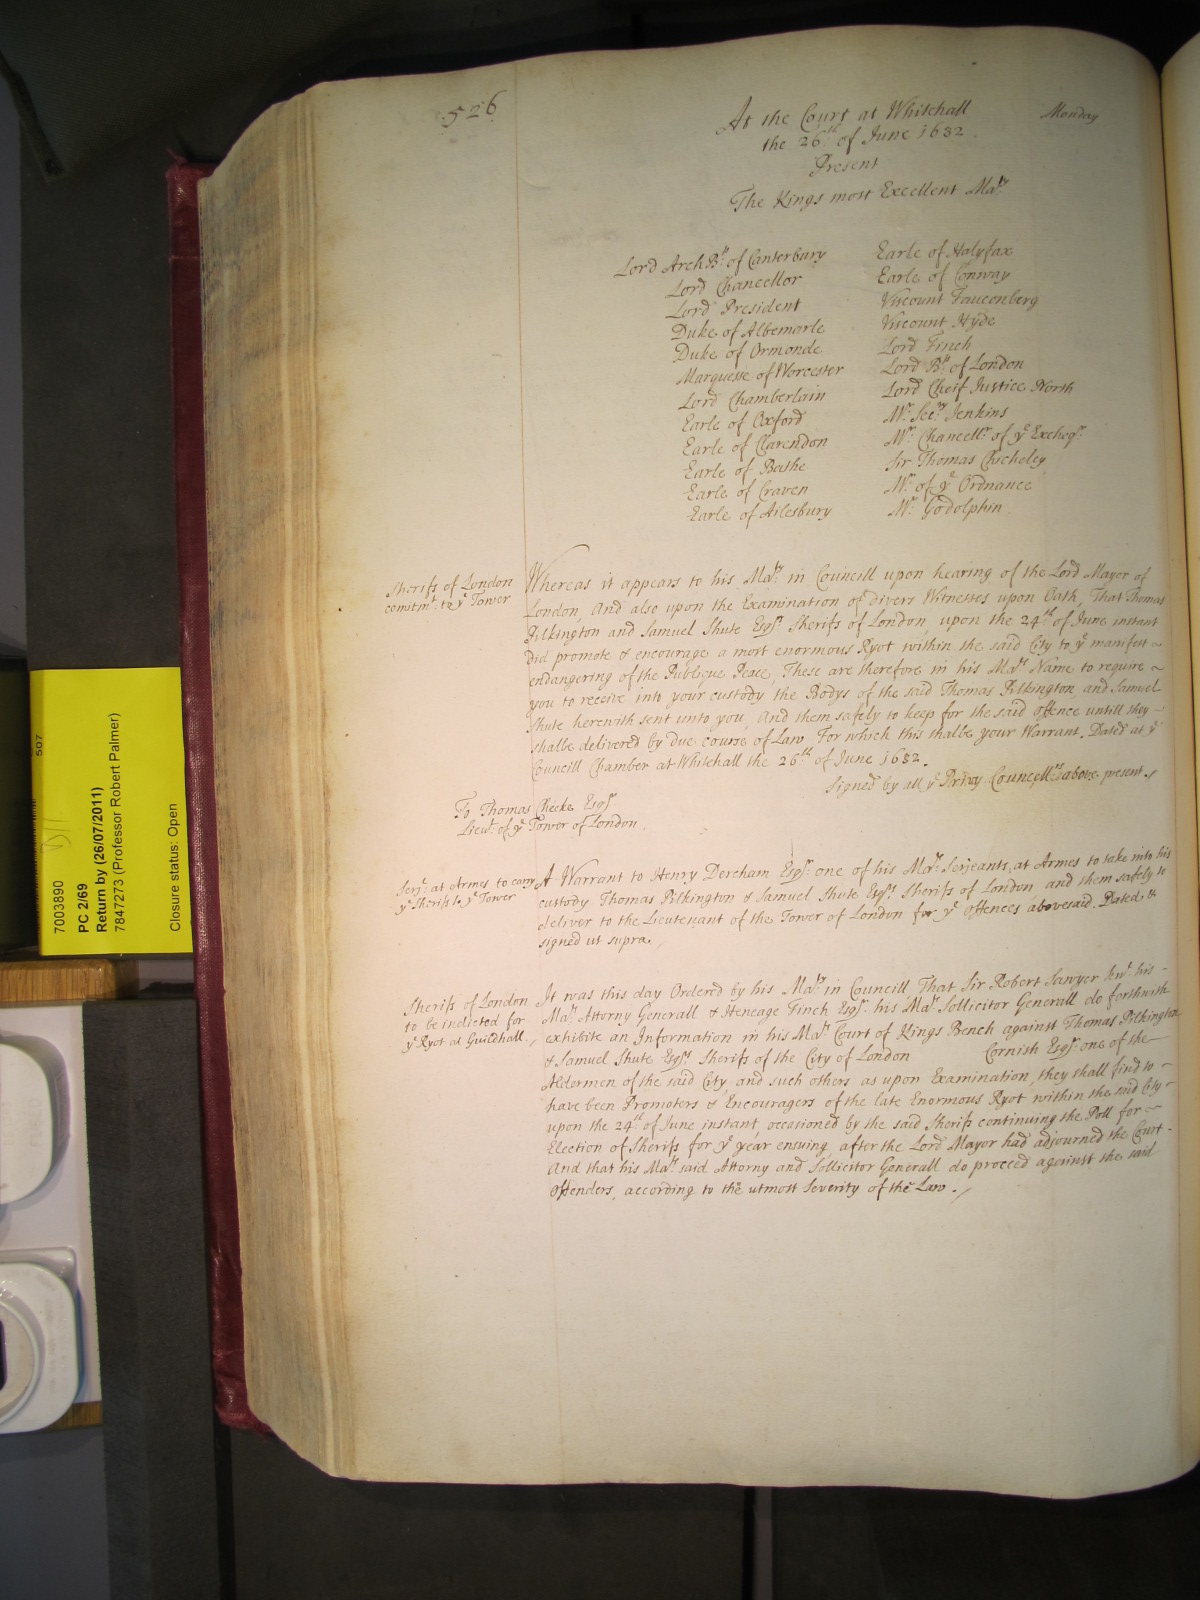 526
At the Court at Whitehall
the 26th of June 1682
Monday
Present
The Kings most Excellent Maty
Lord ArchBp of Canterbury
Lord Chancellor
Lord President
Duke of Albemarle
Duke of Ormonde
Marquesse of Worcester
Lord Chamberlain
Earle of Oxford
Earle of Clarendon
Earle of Bathe
Earle of Craven
Earle of Ailesbury
Earle of Halyfax
Earle of Conway
Viscount Fauconberg
Viscount Hyde
Lord Finch
Lord Bp of London
Lord Cheif Justice North
Mr Secry Jenkins
Mr Chancellr of ye Excheqr
Sir Thomas Chicheley
Mr of ye Ordnance
Mr Godolphin
Sherifs of London
comitmt to ye Tower
Whereas it appears to his Maty in Councill upon hearing of the Lord Mayor of
London, And also upon the Examination of divers Witnesses upon Oath, That Thomas
Pilkington and Samuel Shute Esqrs Sherifs of London, upon the 24th of June instant
did promote & encourage a most enormous Ryot within the said City to ye manifest
endangering of the Publique Peace, These are therefore in his Mats Name to require
you to receive into your custody the Bodys of the said Thomas Pilkington and Samuel
Shute herewith sent unto you, And them safely to keep for the said offence untill they
shalbe delivered by due course of Law. For which this shalbe your Warrant. Dated at ye
Councill Chamber at Whitehall the 26th of June 1682.
Signed by all ye Privy Councellrs above present.
To Thomas Cheeke Esqr
Lieut of ye Tower of London
Serjt at Armes to carry
ye Sherifs to ye Tower
A Warrant to Henry Dereham Esqr one of his Mats Serjeants at Armes to take into his
custody Thomas Pilkington & Samuel Shute Esqrs Sherifs of London and them safely to
deliver to the Lieutenant of the Tower of London for ye offences abovesaid. Dated &
signed ut supra.
Sherifs of London
to be indicted for
ye Ryot at Guildhall.
It was this day Ordered by his Maty in Councill That Sir Robert Sawyer Knt his
Mats Attorny Generall & Heneage Finch Esqr his Mats Sollicitor Generall do forthwith
exhibite an Information in his Mats Court of Kings Bench against Thomas Pilkington
& Samuel Shute Esqrs Sherifs of the City of London Cornish Esqr one of the
Aldermen of the said City, and such others as upon Examination, they shall find to
have been Promoters & Encouragers of the late Enormous Ryot within the said City
upon the 24th of June instant, occasioned by the said Sherifs continuing the Poll for
Election of Sherifs for ye year ensuing, after the Lord Mayor had adjourned the Court
And that his Mats said Attorny and Sollicitor Generall do proceed against the said
Offenders, according to the utmost Severity of the Law.
507
7003890
PC 2/69
Return by (26/07/2011)
7847273 (Professor Robert Palmer)
Closure status: Open